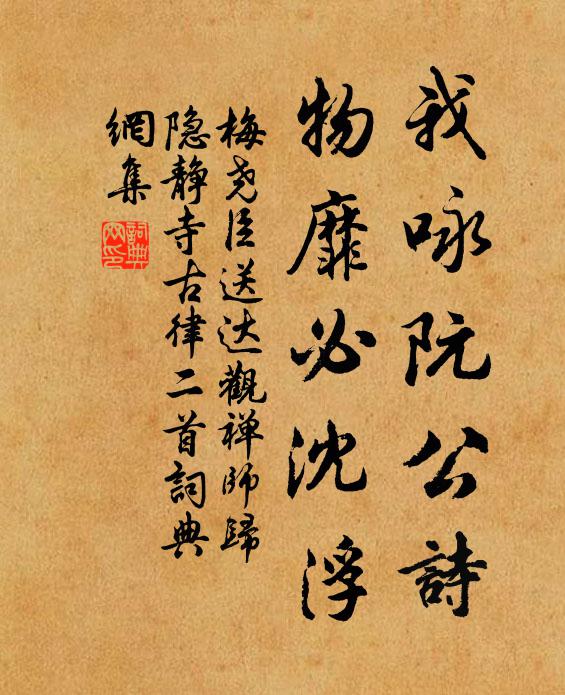 我咏阮公詩
物靡必沈浮
梅尧臣送达觀禅師歸
隐静寺古律二首詞典
網集
詞典
网印